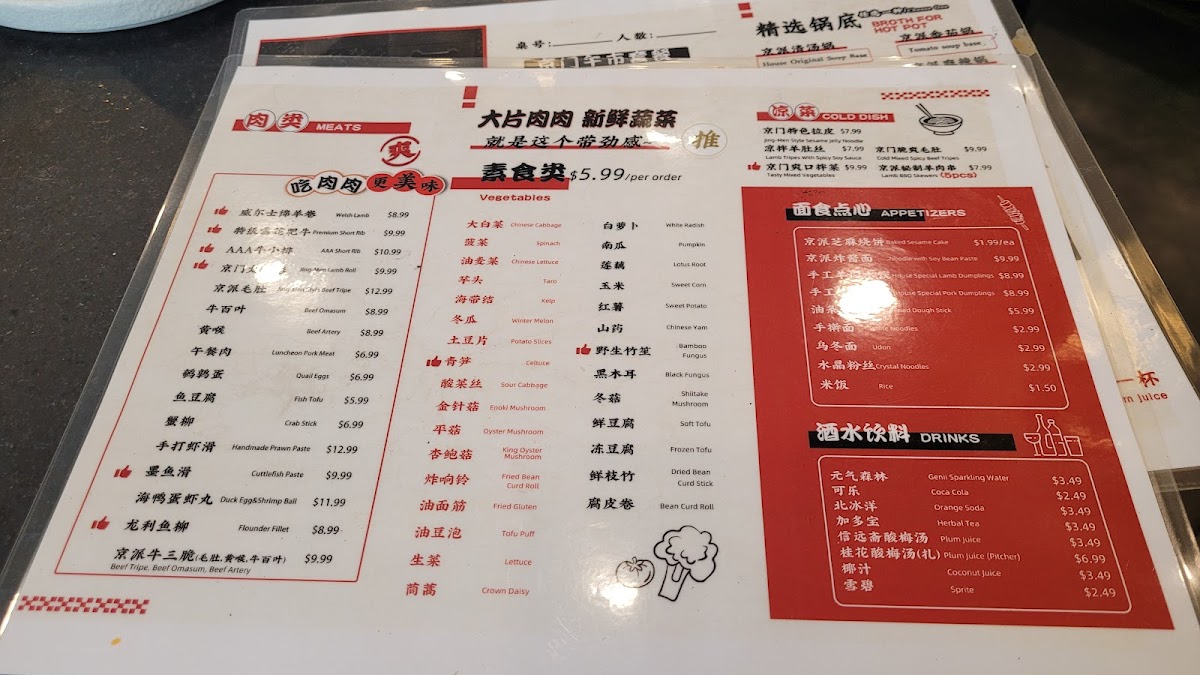 桌号: 人数:
精选锅底
BROTH FOR
HOT POT
京派清汤锅
House Original Soup Base
京派番茄锅
Tomato soup base
肉类 MEATS
爽
吃肉肉更美味
威尔士绵羊卷 Welsh Lamb $8.99
特级雪花肥牛 Premium Short Rib $9.99
AAA牛小排 AAA Short Rib $10.99
京门 Jing-Men Lamb Roll $9.99
京派毛肚 Beef Tripe $12.99
牛百叶 Beef Omasum $8.99
黄喉 Beef Artery $8.99
午餐肉 Luncheon Pork Meat $6.99
鹌鹑蛋 Quail Eggs $6.99
鱼豆腐 Fish Tofu $5.99
蟹柳 Crab Stick $6.99
手打虾滑 Handmade Prawn Paste $12.99
墨鱼滑 Cuttlefish Paste $9.99
海鸭蛋虾丸 Duck Egg&Shrimp Ball $11.99
龙利鱼柳 Flounder Fillet $8.99
京派牛三脆(毛肚,黄喉,牛百叶) $9.99
Beef Tripe, Beef Omasum, Beef Artery
大片肉肉 新鲜蔬菜
就是这个带劲感~
推
素食类 $5.99/per order
Vegetables
大白菜 Chinese Cabbage
菠菜 Spinach
油麦菜 Chinese Lettuce
芋头 Taro
海带结 Kelp
冬瓜 Winter Melon
土豆片 Potato Slices
青笋 Celtuce
酸菜丝 Sour Cabbage
金针菇 Enoki Mushroom
平菇 Oyster Mushroom
杏鲍菇 King Oyster
Mushroom
炸响铃 Fried Bean
Curd Roll
油面筋 Fried Gluten
油豆泡 Tofu Puff
生菜 Lettuce
茼蒿 Crown Daisy
白萝卜 White Radish
南瓜 Pumpkin
莲藕 Lotus Root
玉米 Sweet Corn
红薯 Sweet Potato
山药 Chinese Yam
野生竹笙 Bamboo
Fungus
黑木耳 Black Fungus
冬菇 Shiitake
Mushroom
鲜豆腐 Soft Tofu
冻豆腐 Frozen Tofu
鲜枝竹 Dried Bean
Curd Stick
腐皮卷 Bean Curd Roll
凉菜 COLD DISH
京门特色拉皮 $7.99
Jing-Men Style Sesame Jelly Noodle
凉拌羊肚丝 $7.99
Lamb Tripes With Spicy Soy Sauce
京门爽口拌菜 $9.99
Tasty Mixed Vegetables
京门脆爽毛肚 $9.99
Cold Mixed Spicy Beef Tripes
京派秘制羊肉串 $7.99
Lamb BBQ Skewers (5pcs)
面食点心 APPETIZERS
京派芝麻烧饼 Baked Sesame Cake $1.99/ea
京派炸酱面 Noodle with Soy Bean Paste $9.99
手工羊 House Special Lamb Dumplings $8.99
手工 House Special Pork Dumplings $8.99
油条 Dough Stick $5.99
手擀面 Noodles $2.99
乌冬面 Udon $2.99
水晶粉丝 Crystal Noodles $2.99
米饭 Rice $1.50
酒水饮料 DRINKS
元气森林 Genii Sparkling Water $3.49
可乐 Coca Cola $2.49
北冰洋 Orange Soda $3.49
加多宝 Herbal Tea $3.49
信远斋酸梅汤 Plum Juice $3.49
桂花酸梅汤(扎) Plum Juice (Pitcher) $6.99
椰汁 Coconut Juice $3.49
雪碧 Sprite $2.49
一杯
juice